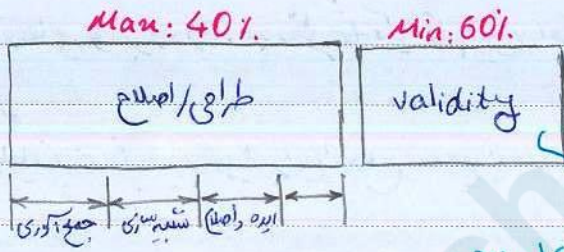 Max: 40% Min: 60%
طراحی/اصلاح validity
جمع‌آوری شبیه‌سازی ایده واصلاح